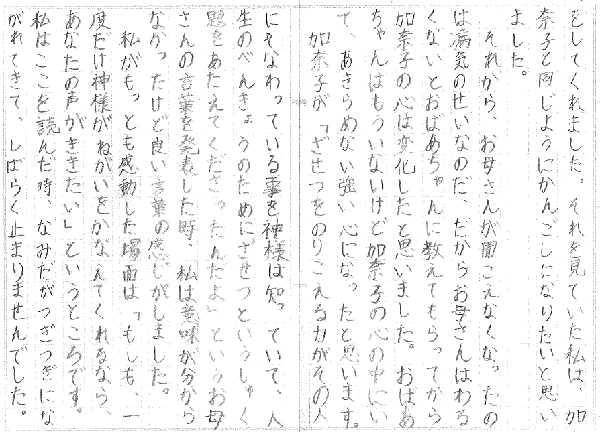 をしてくれました。それを見ていた私は、加
奈子と同じようにかんごしになりたいと思い
ました。
それから、お母さんが聞こえなくなったの
は病気のせいなのだ、だからお母さんはわる
くないとおばあちゃんに教えてもらってから
加奈子の心は変化したと思いました。おばあ
ちゃんはもういないけど加奈子の心の中にい
て、あきらめない強い心になったと思います。
加奈子が「ざせつをのりこえる力がその人
にそなわっている事を神様は知っていて、人
生のべんきょうのためにざせつというしゅく
題をあたえてくださったんだよ」というお母
さんの言葉を発表した時、私は意味が分から
なかったけど良い言葉の感じがしました。
私がもっとも感動した場面は「もしも、一
度だけ神様がねがいをかなえてくれるなら、
あなたの声がききたい」というところです。
私はここを読んだ時、なみだがつぎつぎにな
がれてきて、しばらく止まりませんでした。